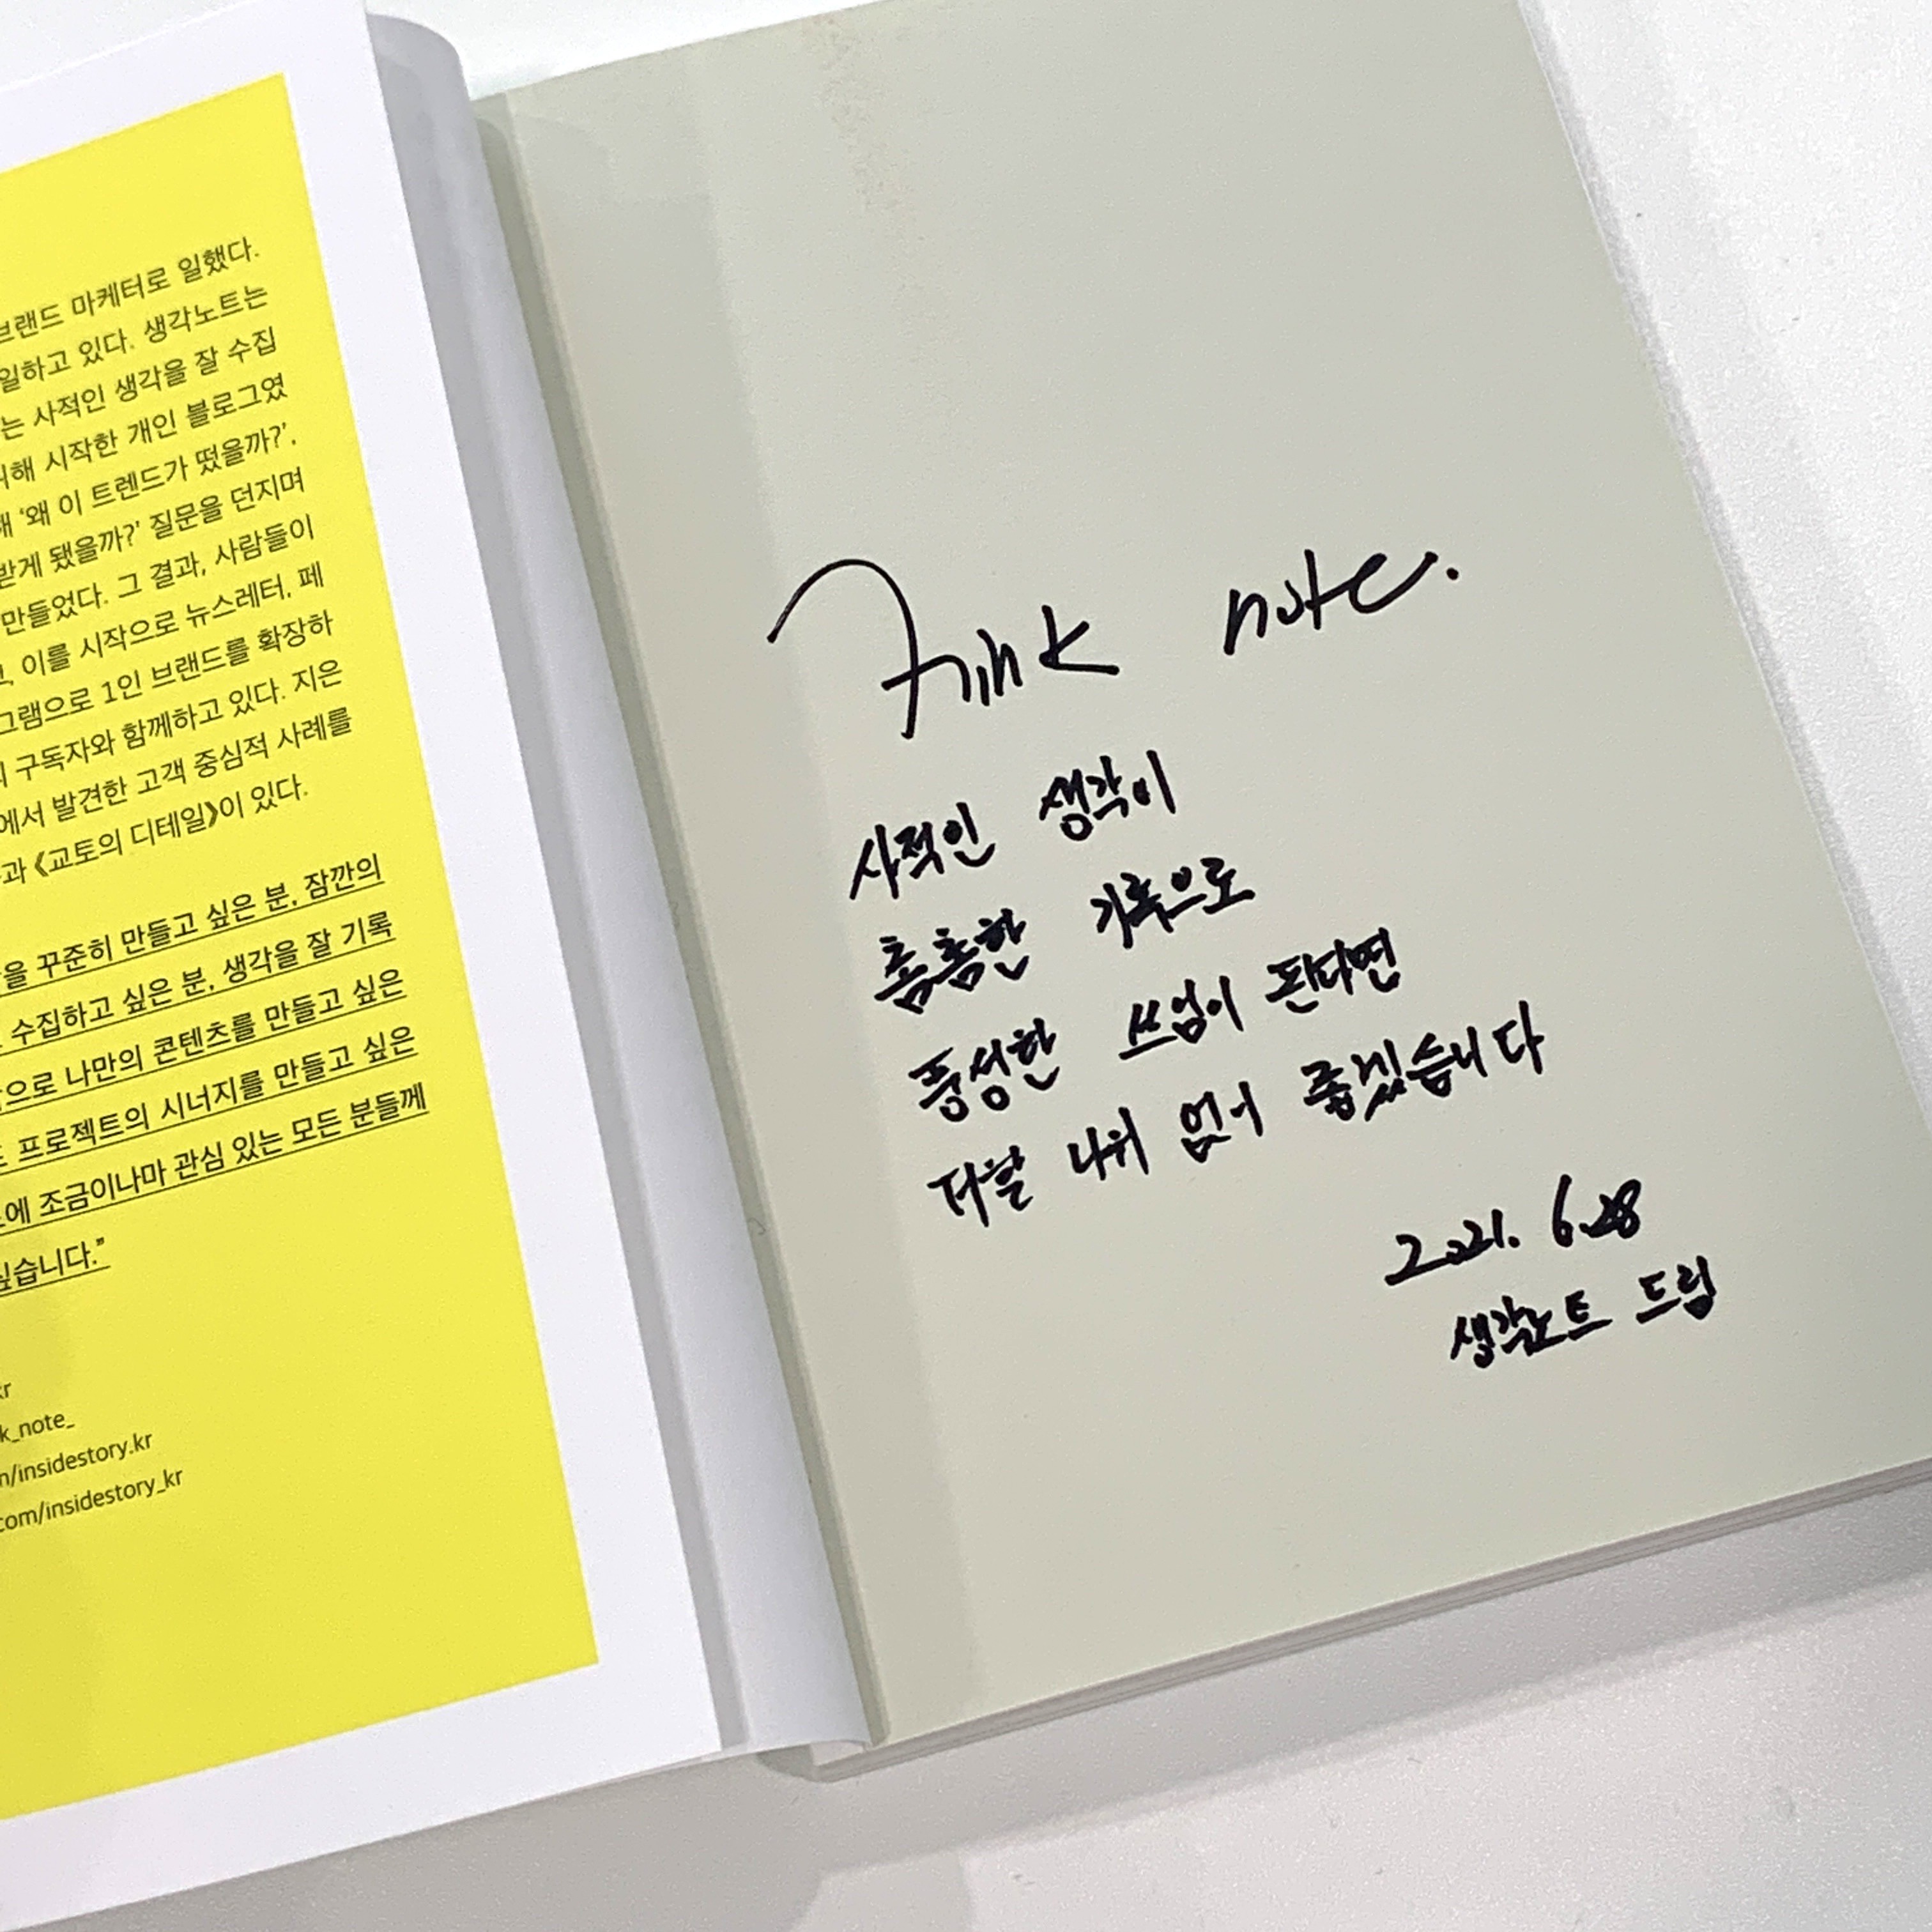 브랜드 마케터로 일했다.
일하고 있다. 생각노트는
는 사적인 생각을 잘 수집
위해 시작한 개인 블로그였
해 ‘왜 이 트렌드가 떴을까?’,
받게 됐을까?’ 질문을 던지며
만들었다. 그 결과, 사람들이
이를 시작으로 뉴스레터, 페
그램으로 1인 브랜드를 확장하
구독자와 함께하고 있다. 지은
에서 발견한 고객 중심적 사례를
과 《교토의 디테일》이 있다.
을 꾸준히 만들고 싶은 분, 잠깐의
수집하고 싶은 분, 생각을 잘 기록
으로 나만의 콘텐츠를 만들고 싶은
프로젝트의 시너지를 만들고 싶은
에 조금이나마 관심 있는 모든 분들께
싶습니다.”
kr
k_note_
m/insidestory.kr
com/insidestory_kr
Think note.
사적인 생각이
촘촘한 기록으로
풍성한 쓰임이 된다면
더할 나위 없이 좋겠습니다
2021. 6.28
생각노트 드림